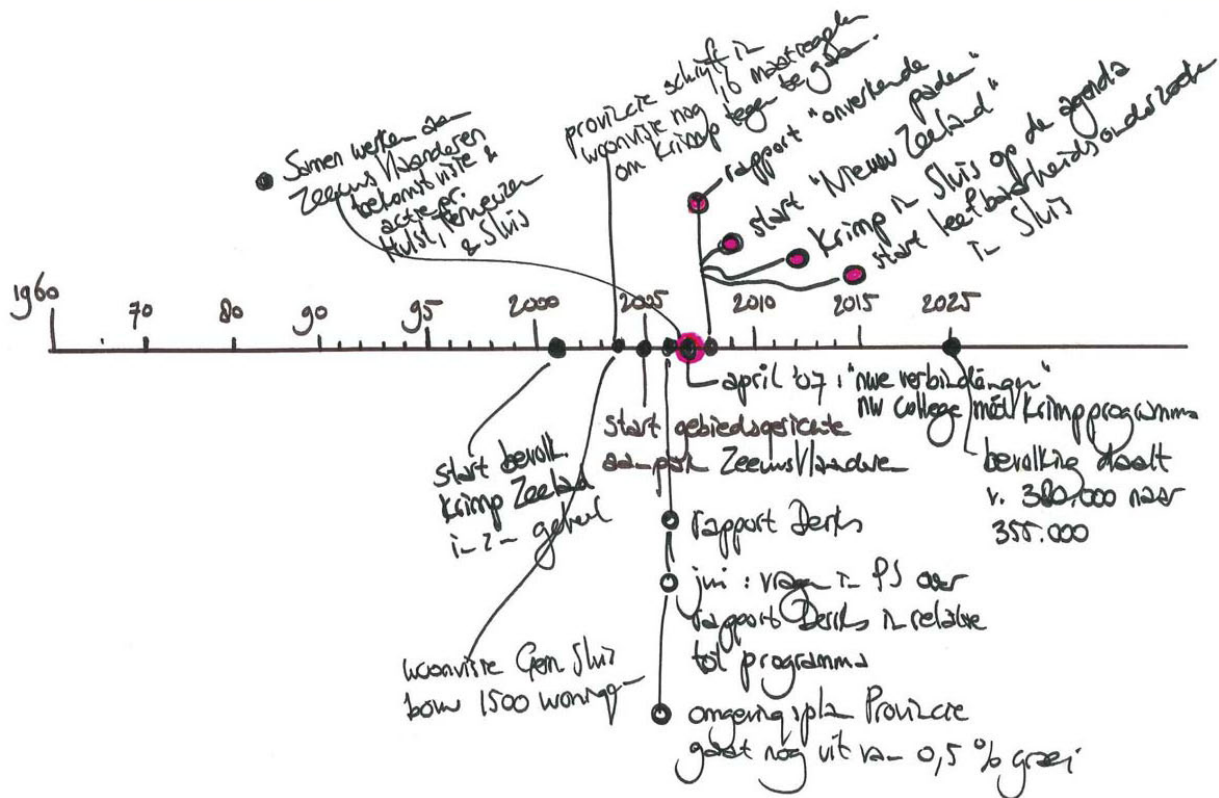 Samen werken aan
Zeeuws Vlaanderen
toekomstvisie &
actiepr.
Hulst, Terneuzen
& Sluis
provincie schrijft in
woonvisie nog 16 maatregelen
om krimp tegen te gaan.
rapport "onverkende paden"
start "Nieuw Zeeland"
Krimp in Sluis op de agenda
start leefbaarheidsonderzoek
in Sluis
1960
70
80
90
95
2000
2005
2010
2015
2025
april '07 : "nwe verbindingen"
nw college mét krimpprogramma
start gebiedsgerichte
aanpak Zeeuws Vlaanderen
start bevolk.
krimp Zeeland
in z'n geheel
bevolking daalt
v. 380.000 naar
355.000
rapport Derks
juni : vragen in PS over
rapport Derks in relatie
tot programma
woonvisie Gem Sluis
bouw 1500 woningen
omgevingsplan Provincie
gaat nog uit van 0,5 % groei